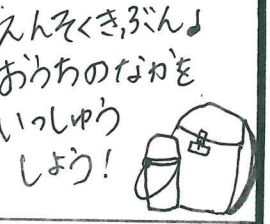 えんそくきぶん♩
おうちのなかを
いっしゅう
しょう!